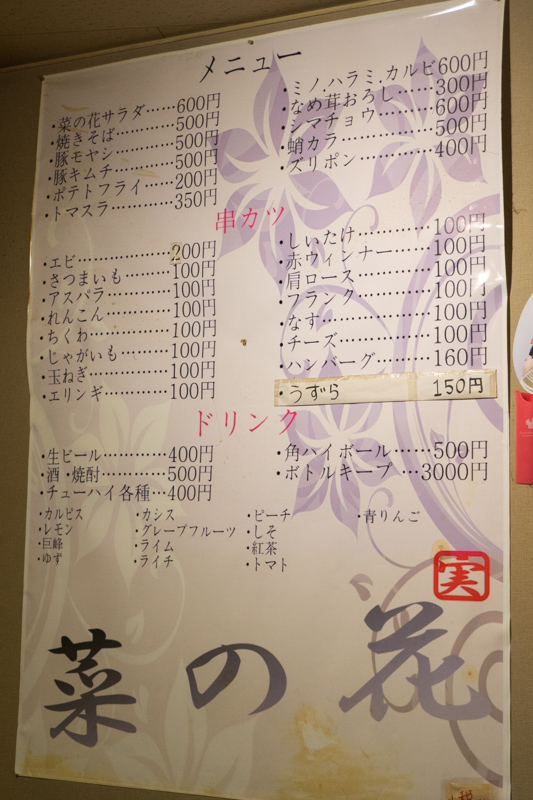 メニュー
・菜の花サラダ……600円
・焼きそば…………500円
・豚モヤシ…………500円
・豚キムチ…………500円
・ポテトフライ……200円
・トマスラ…………350円
・ミノ,ハラミ,カルビ600円
・なめ茸おろし……300円
・シマチョウ………600円
・蛸カラ……………500円
・ズリポン…………400円
串カツ
・エビ………………200円
・さつまいも………100円
・アスパラ…………100円
・れんこん…………100円
・ちくわ……………100円
・じゃがいも………100円
・玉ねぎ……………100円
・エリンギ…………100円
・しいたけ…………100円
・赤ウィンナー……100円
・肩ロース…………100円
・フランク…………100円
・なす………………100円
・チーズ……………100円
・ハンバーグ………160円
・うずら 150円
ドリンク
・生ビール…………400円
・酒・焼酎…………500円
・チューハイ各種…400円
・角ハイボール……500円
・ボトルキープ…3000円
・カルピス
・レモン
・巨峰
・ゆず
・カシス
・グレープフルーツ
・ライム
・ライチ
・ピーチ
・しそ
・紅茶
・トマト
・青りんご
実
菜の花